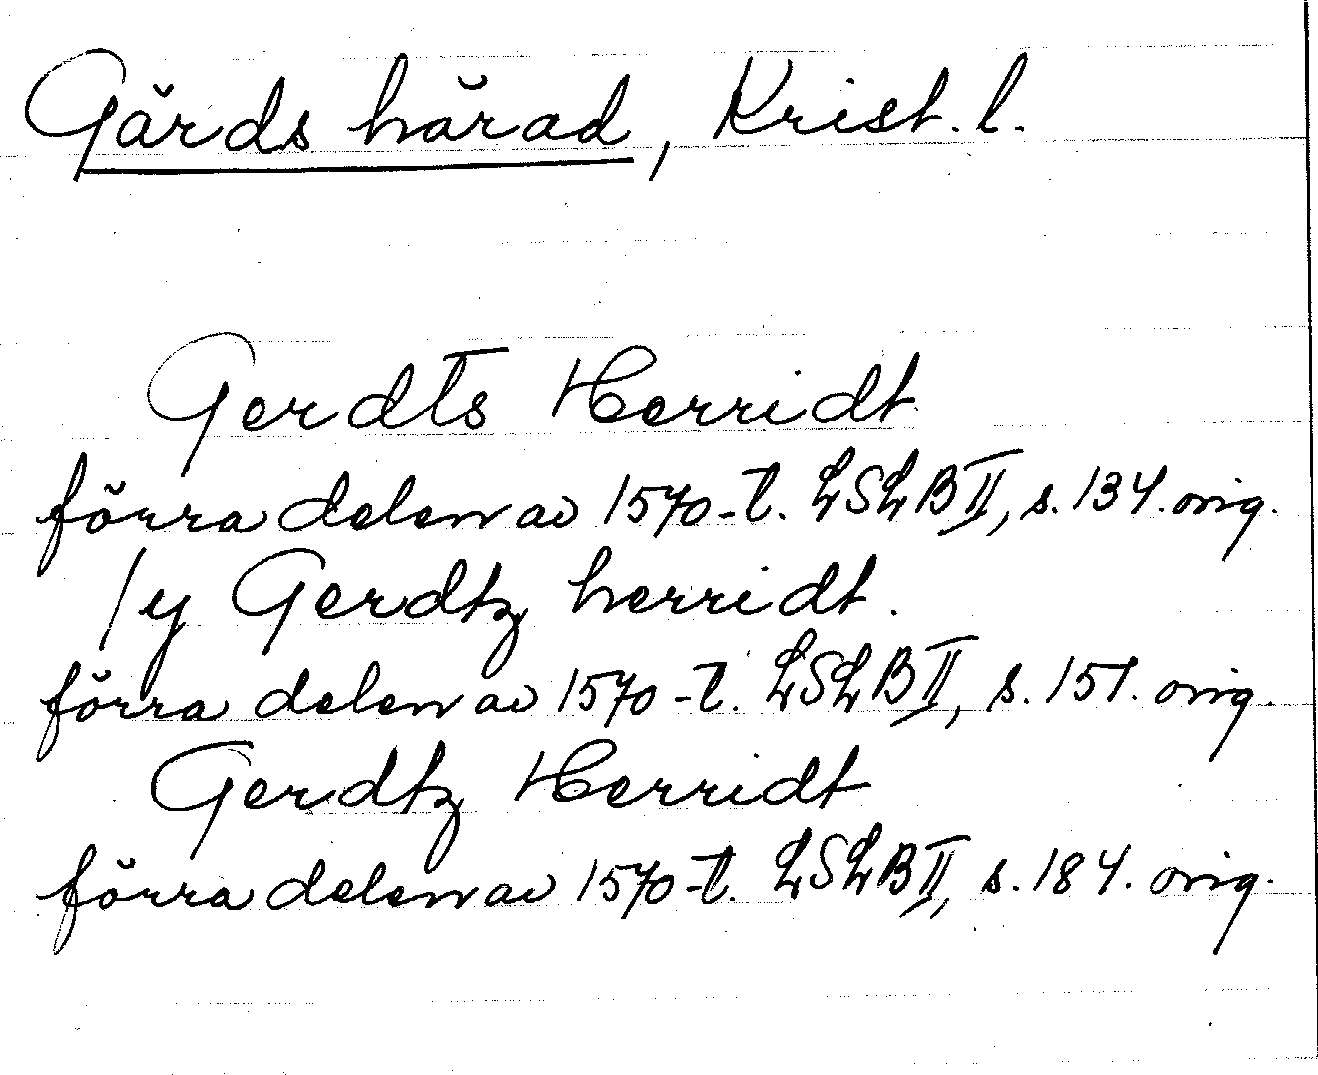 Gärds härad, Krist. l.
Gerdts Herridt
förra delen av 1570-t. LSLB II, s. 134. orig.
/y Gerdtz herridt.
förra delen av 1570-t. LSLB II, s. 151. orig.
Gerdtz Herridt
förra delen av 1570-t. LSLB II, s. 184. orig.